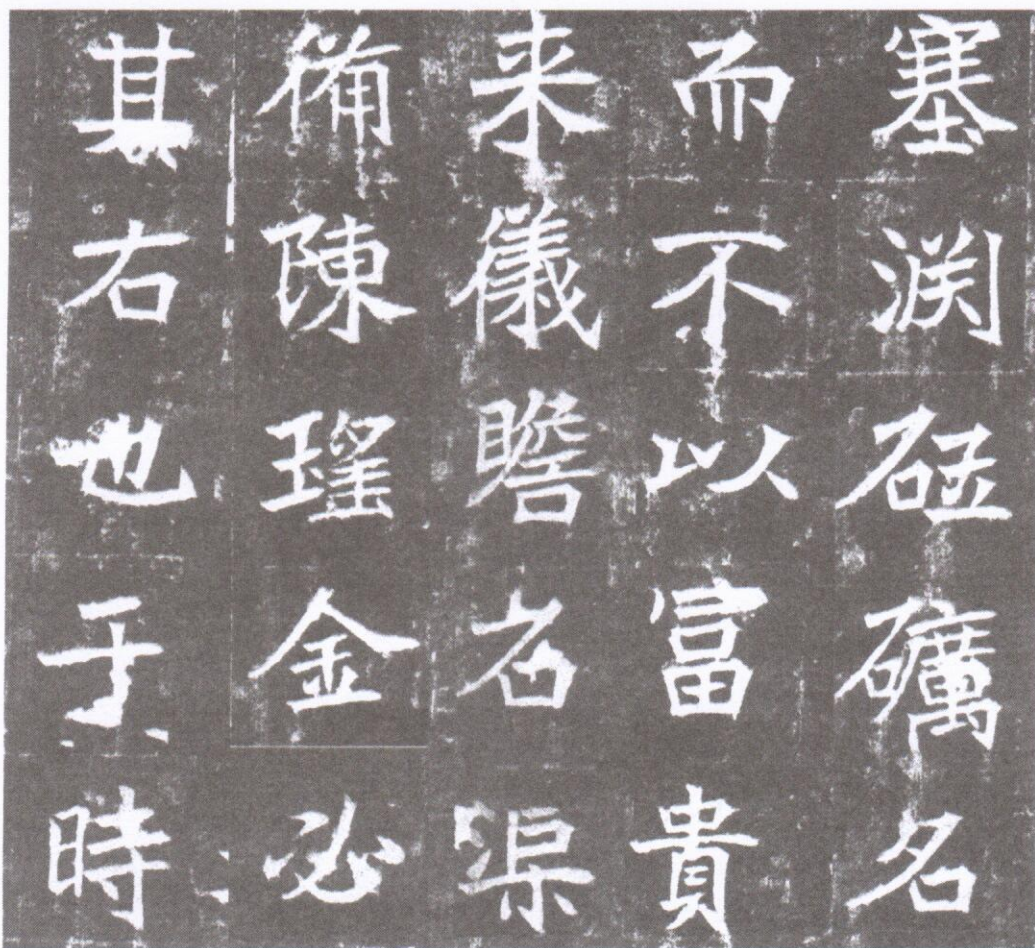 塞渕砥礪名
而不以富貴
来儀瞻石渠
備陳瑤金必
其右也于時